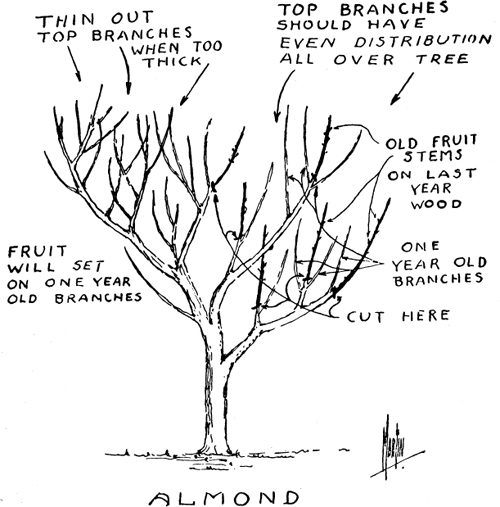 THIN OUT
TOP BRANCHES
WHEN TOO
THICK
TOP BRANCHES
SHOULD HAVE
EVEN DISTRIBUTION
ALL OVER TREE
OLD FRUIT
STEMS
ON LAST
YEAR
WOOD
FRUIT
WILL SET
ON ONE YEAR
OLD BRANCHES
ONE
YEAR OLD
BRANCHES
CUT HERE
ALMOND